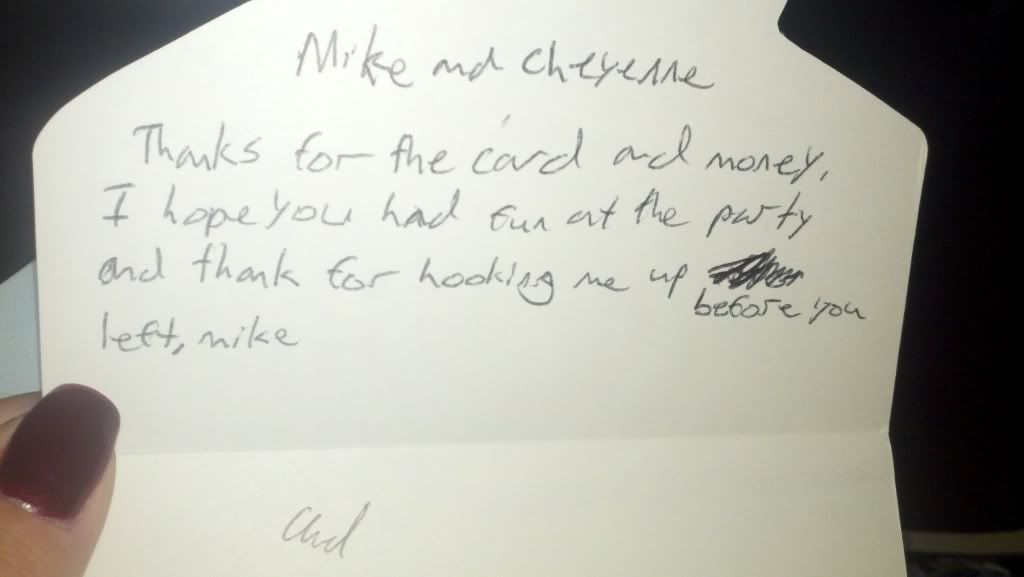 Mike and Cheyenne
Thanks for the card and money,
I hope you had fun at the party
and thank for hooking me up
before you
left, mike
Chad